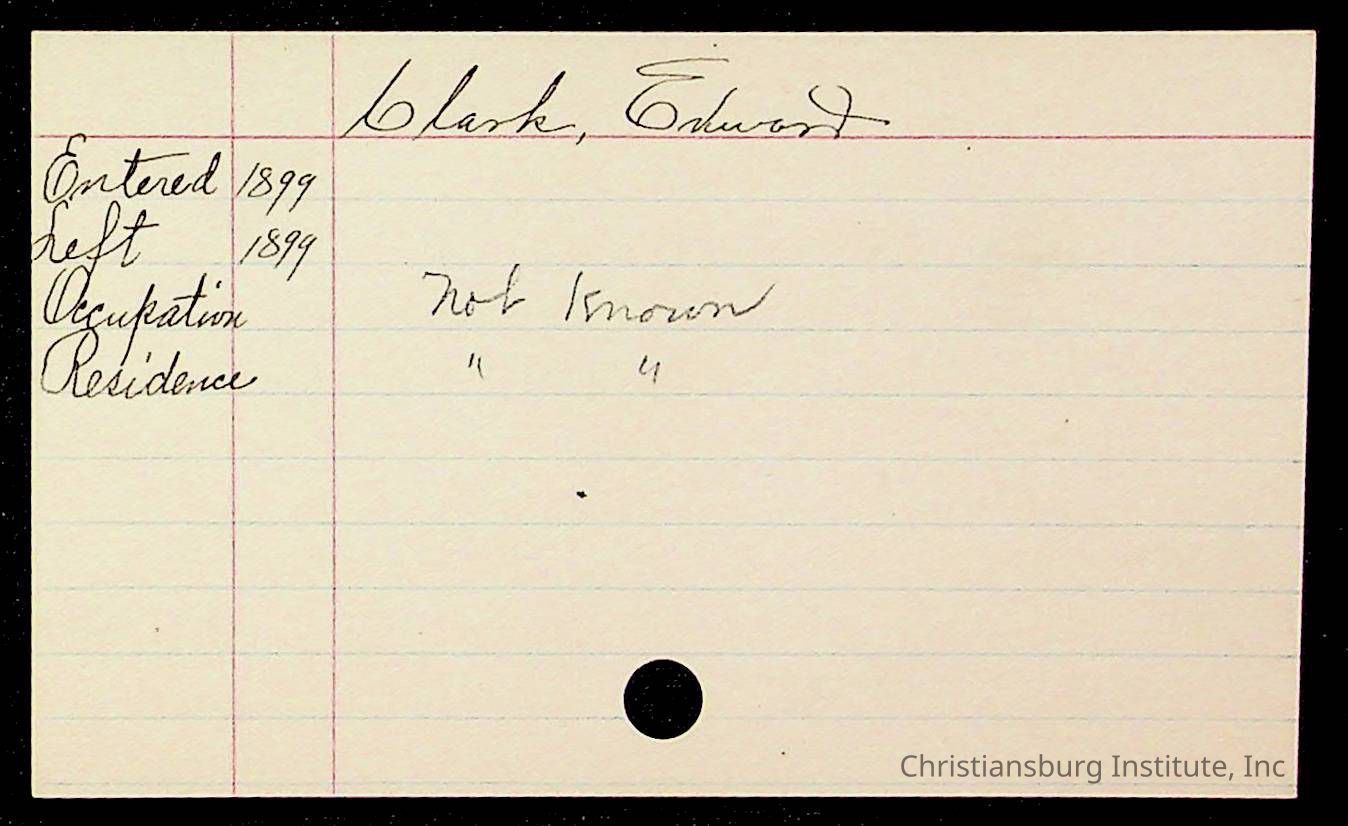 Clark, Edward
Entered 1899
Left 1899
Occupation Not Known
Residence " "
Christiansburg Institute, Inc